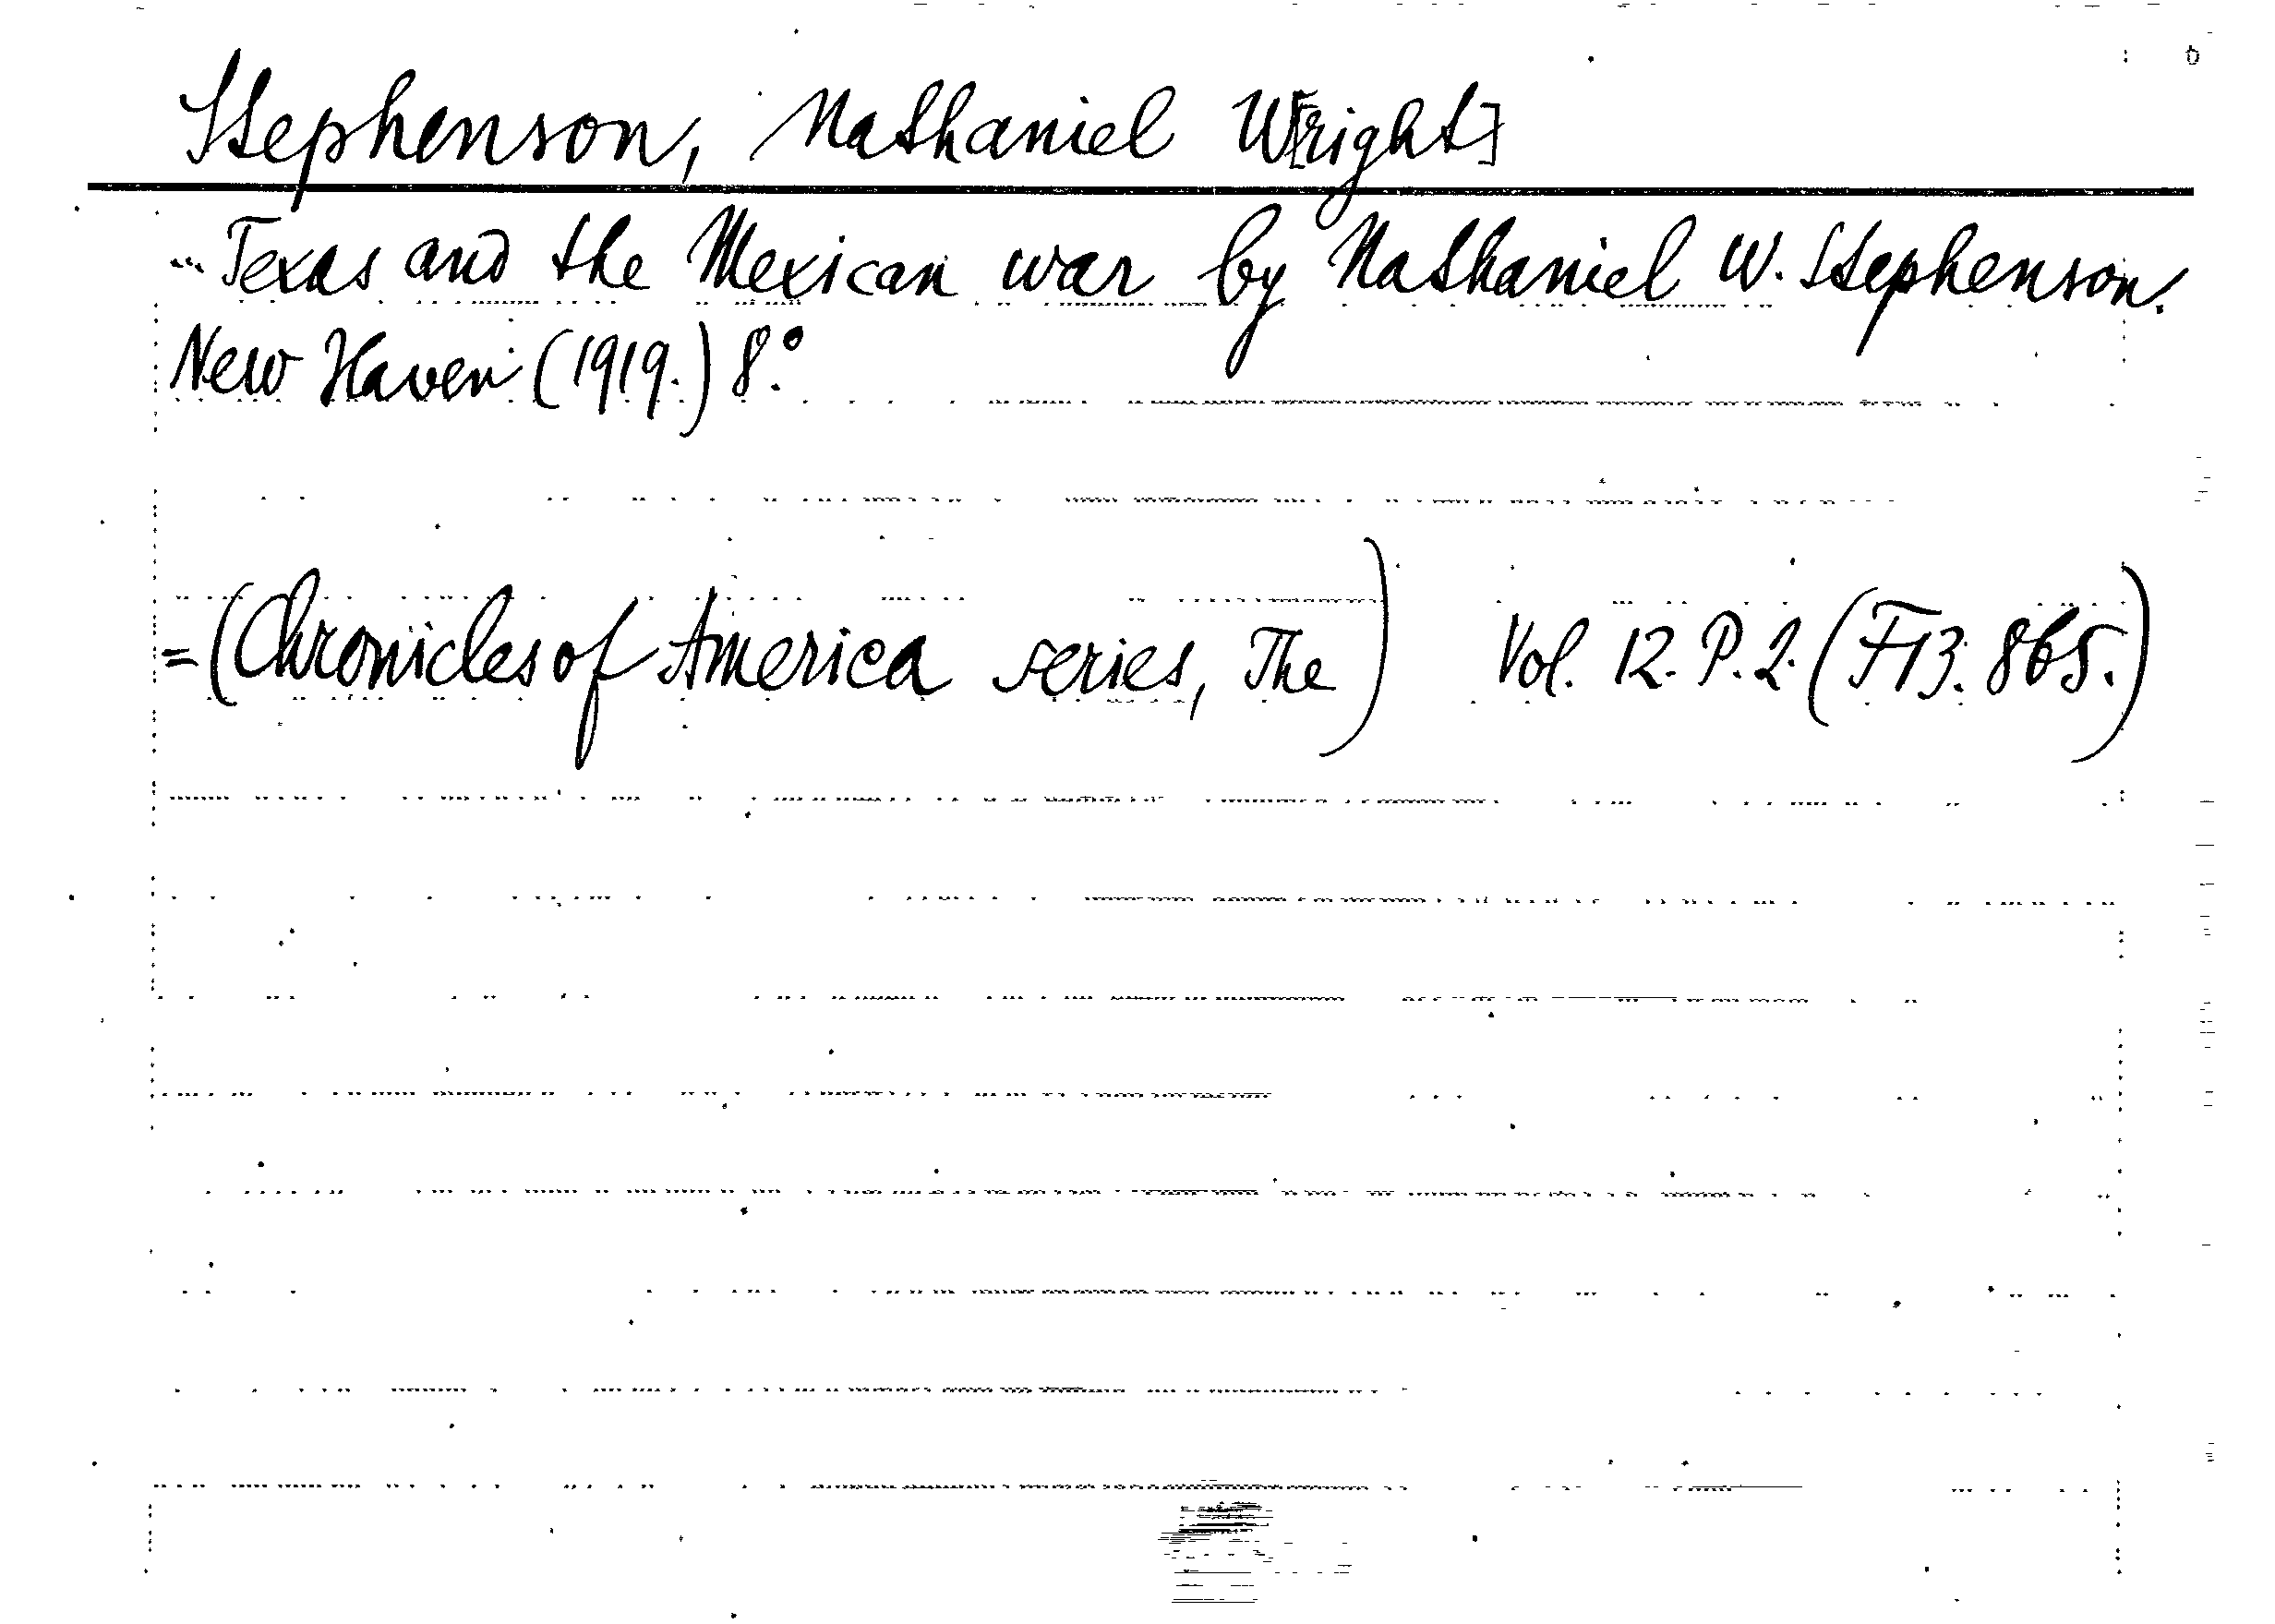 Stephenson, Nathaniel W[right]
... Texas and the Mexican war by Nathaniel W. Stephenson.
New Haven (1919.) 8.°
= (Chronicles of America series, The) Vol. 12. P. 2. (F13. 865.)